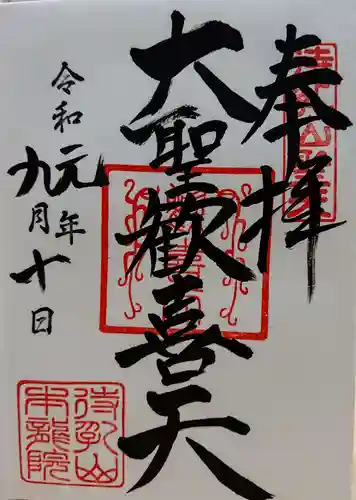 奉拝
大聖歓喜天
令和元年
九月十日
待乳山
本龍院